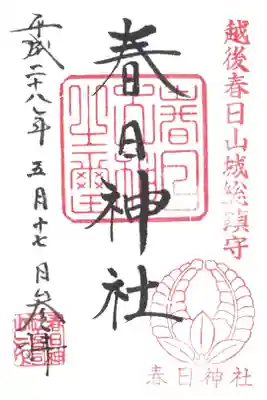 越後春日山城総鎮守
春日神社
春日神社
平成二十八年五月十七日参拝